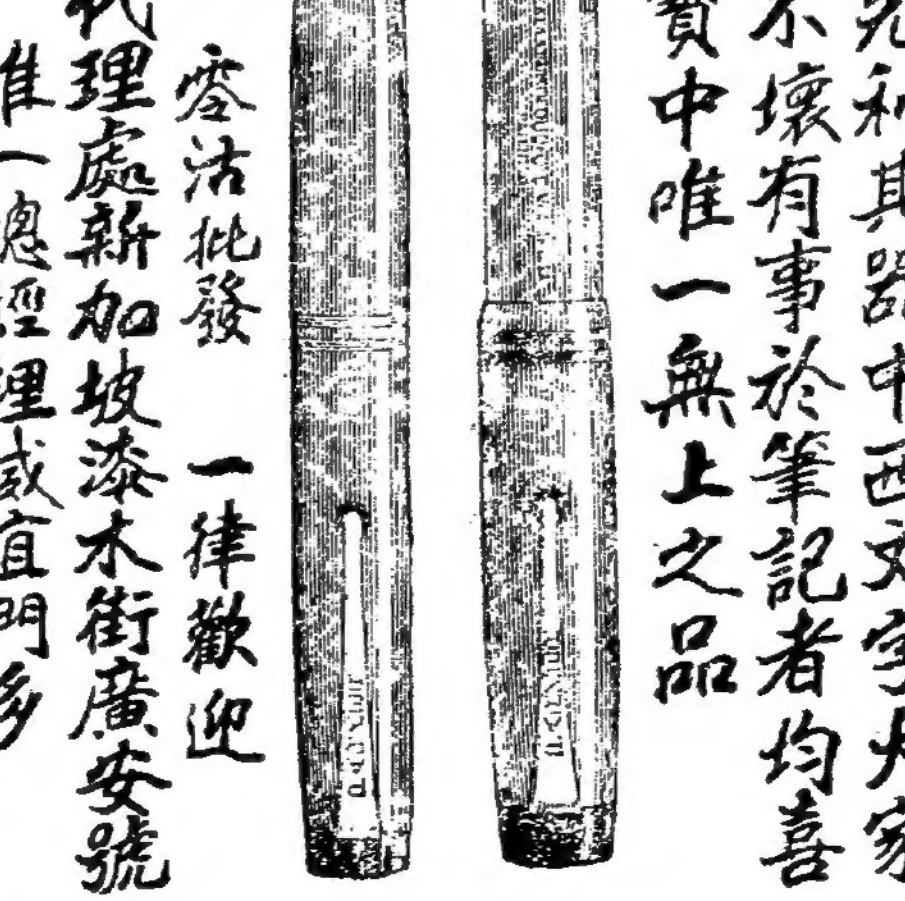 和其器中西文字大家
不壞有事於筆記者均喜
寶中唯一無上之品
零沽批發 一律歡迎
代理處新加坡漆木街廣安號
唯一總經理威宜門多